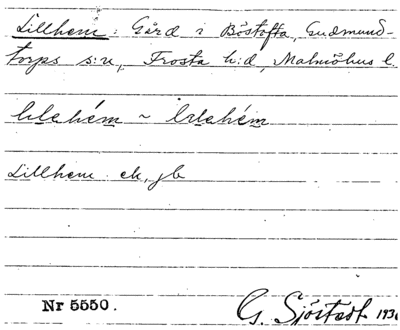 Lillhem: Gård i Böstofta, Gudmund-
torps s:n, Frosta h:d, Malmöhus l.
~
Lillhem: ek, jb
Nr 5550.
G. Sjöstedt 193